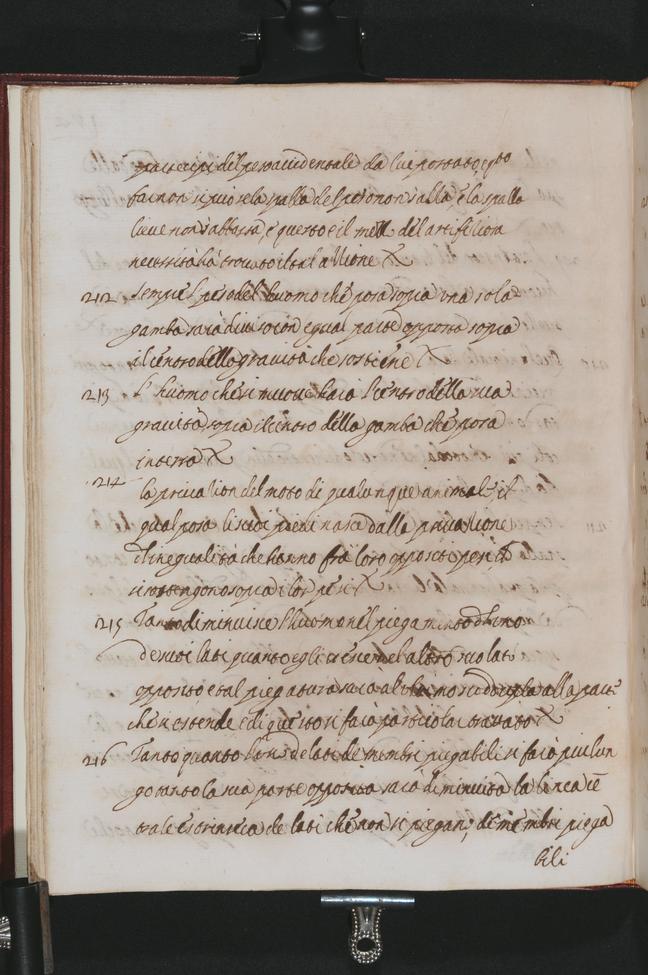 partecipi del peso accidentale da lui portato, e q.to
far non si può se la spalla del peso non s'alla, e la spalla
lieve non s'abbassa, e questo è il mezz. che l'artifitiosa
necessità hà trovato il tal attione
212 Sempre l peso dell huomo che posa sopra una sola
gamba sarà diviso con egual parte opposta sopra
il centro della gravità che sostiene
213 L'huomo che si muove harà l centro della sua
gravità sopra il centro della gamba che posa
in terra
214 la privation del moto di qualunque animale il
qual posa li suoi piedi nasce dalla privatione
d'inequalità che hanno frà loro oppositi pesi ch
si sostengono sopra i lor pesi
215 Tanto diminuisce l'huomo nel piegamento d'uno
de suoi lati quanto egli cresce nel altro suo lato
opposito et tal piegatura sarà al ultimo suddupla alla parte
che si estende e di questo si farà particolar trattato
216 Tanto quanto l'un de lati de membri piegabili si farà più lun
go tanto la sua parte opposita sarà diminuita la linea cē
trale estrinsica de lati che non si piegan, de membri piega
bili